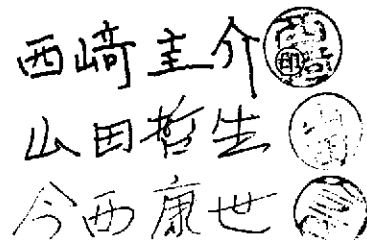 西﨑圭介
山田哲生
今西康世